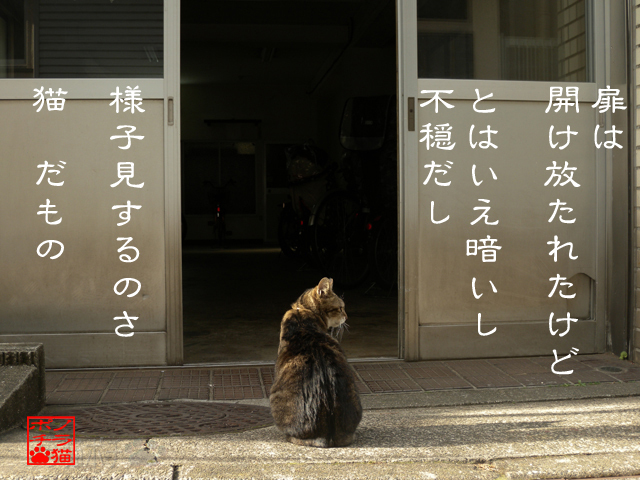 扉は
開け放たれたけど
とはいえ暗いし
不穏だし
様子見するのさ
猫　だもの
プラ猫
ホチ